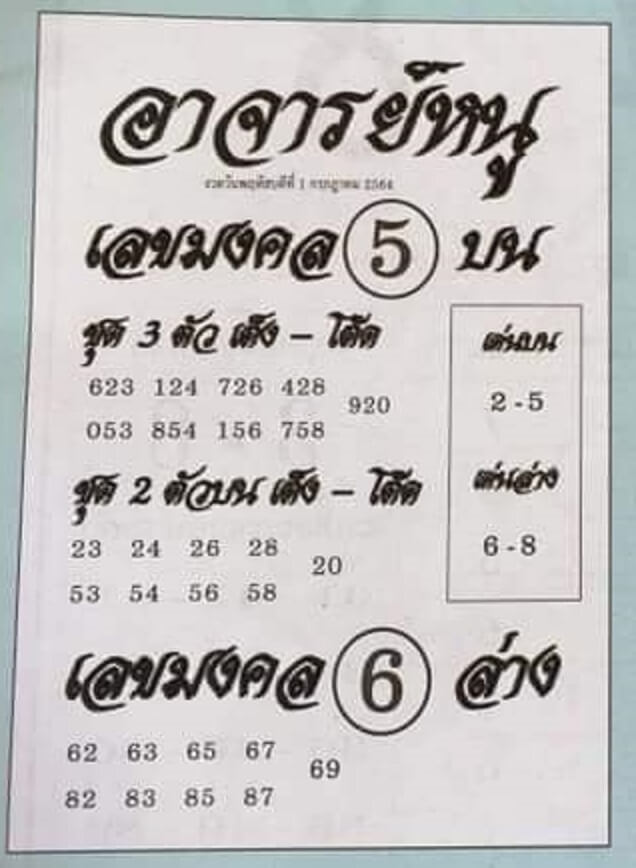 อาจารย์หนู
งวดวันพฤหัสบดีที่ 1 กรกฎาคม 2564
เลขมงคล 5 บน
ชุด 3 ตัว เต็ง – โต๊ด
623 124 726 428
920
053 854 156 758
ชุด 2 ตัวบน เต็ง – โต๊ด
23 24 26 28
20
53 54 56 58
เด่นบน
2 - 5
เด่นล่าง
6 - 8
เลขมงคล 6 ล่าง
62 63 65 67
69
82 83 85 87